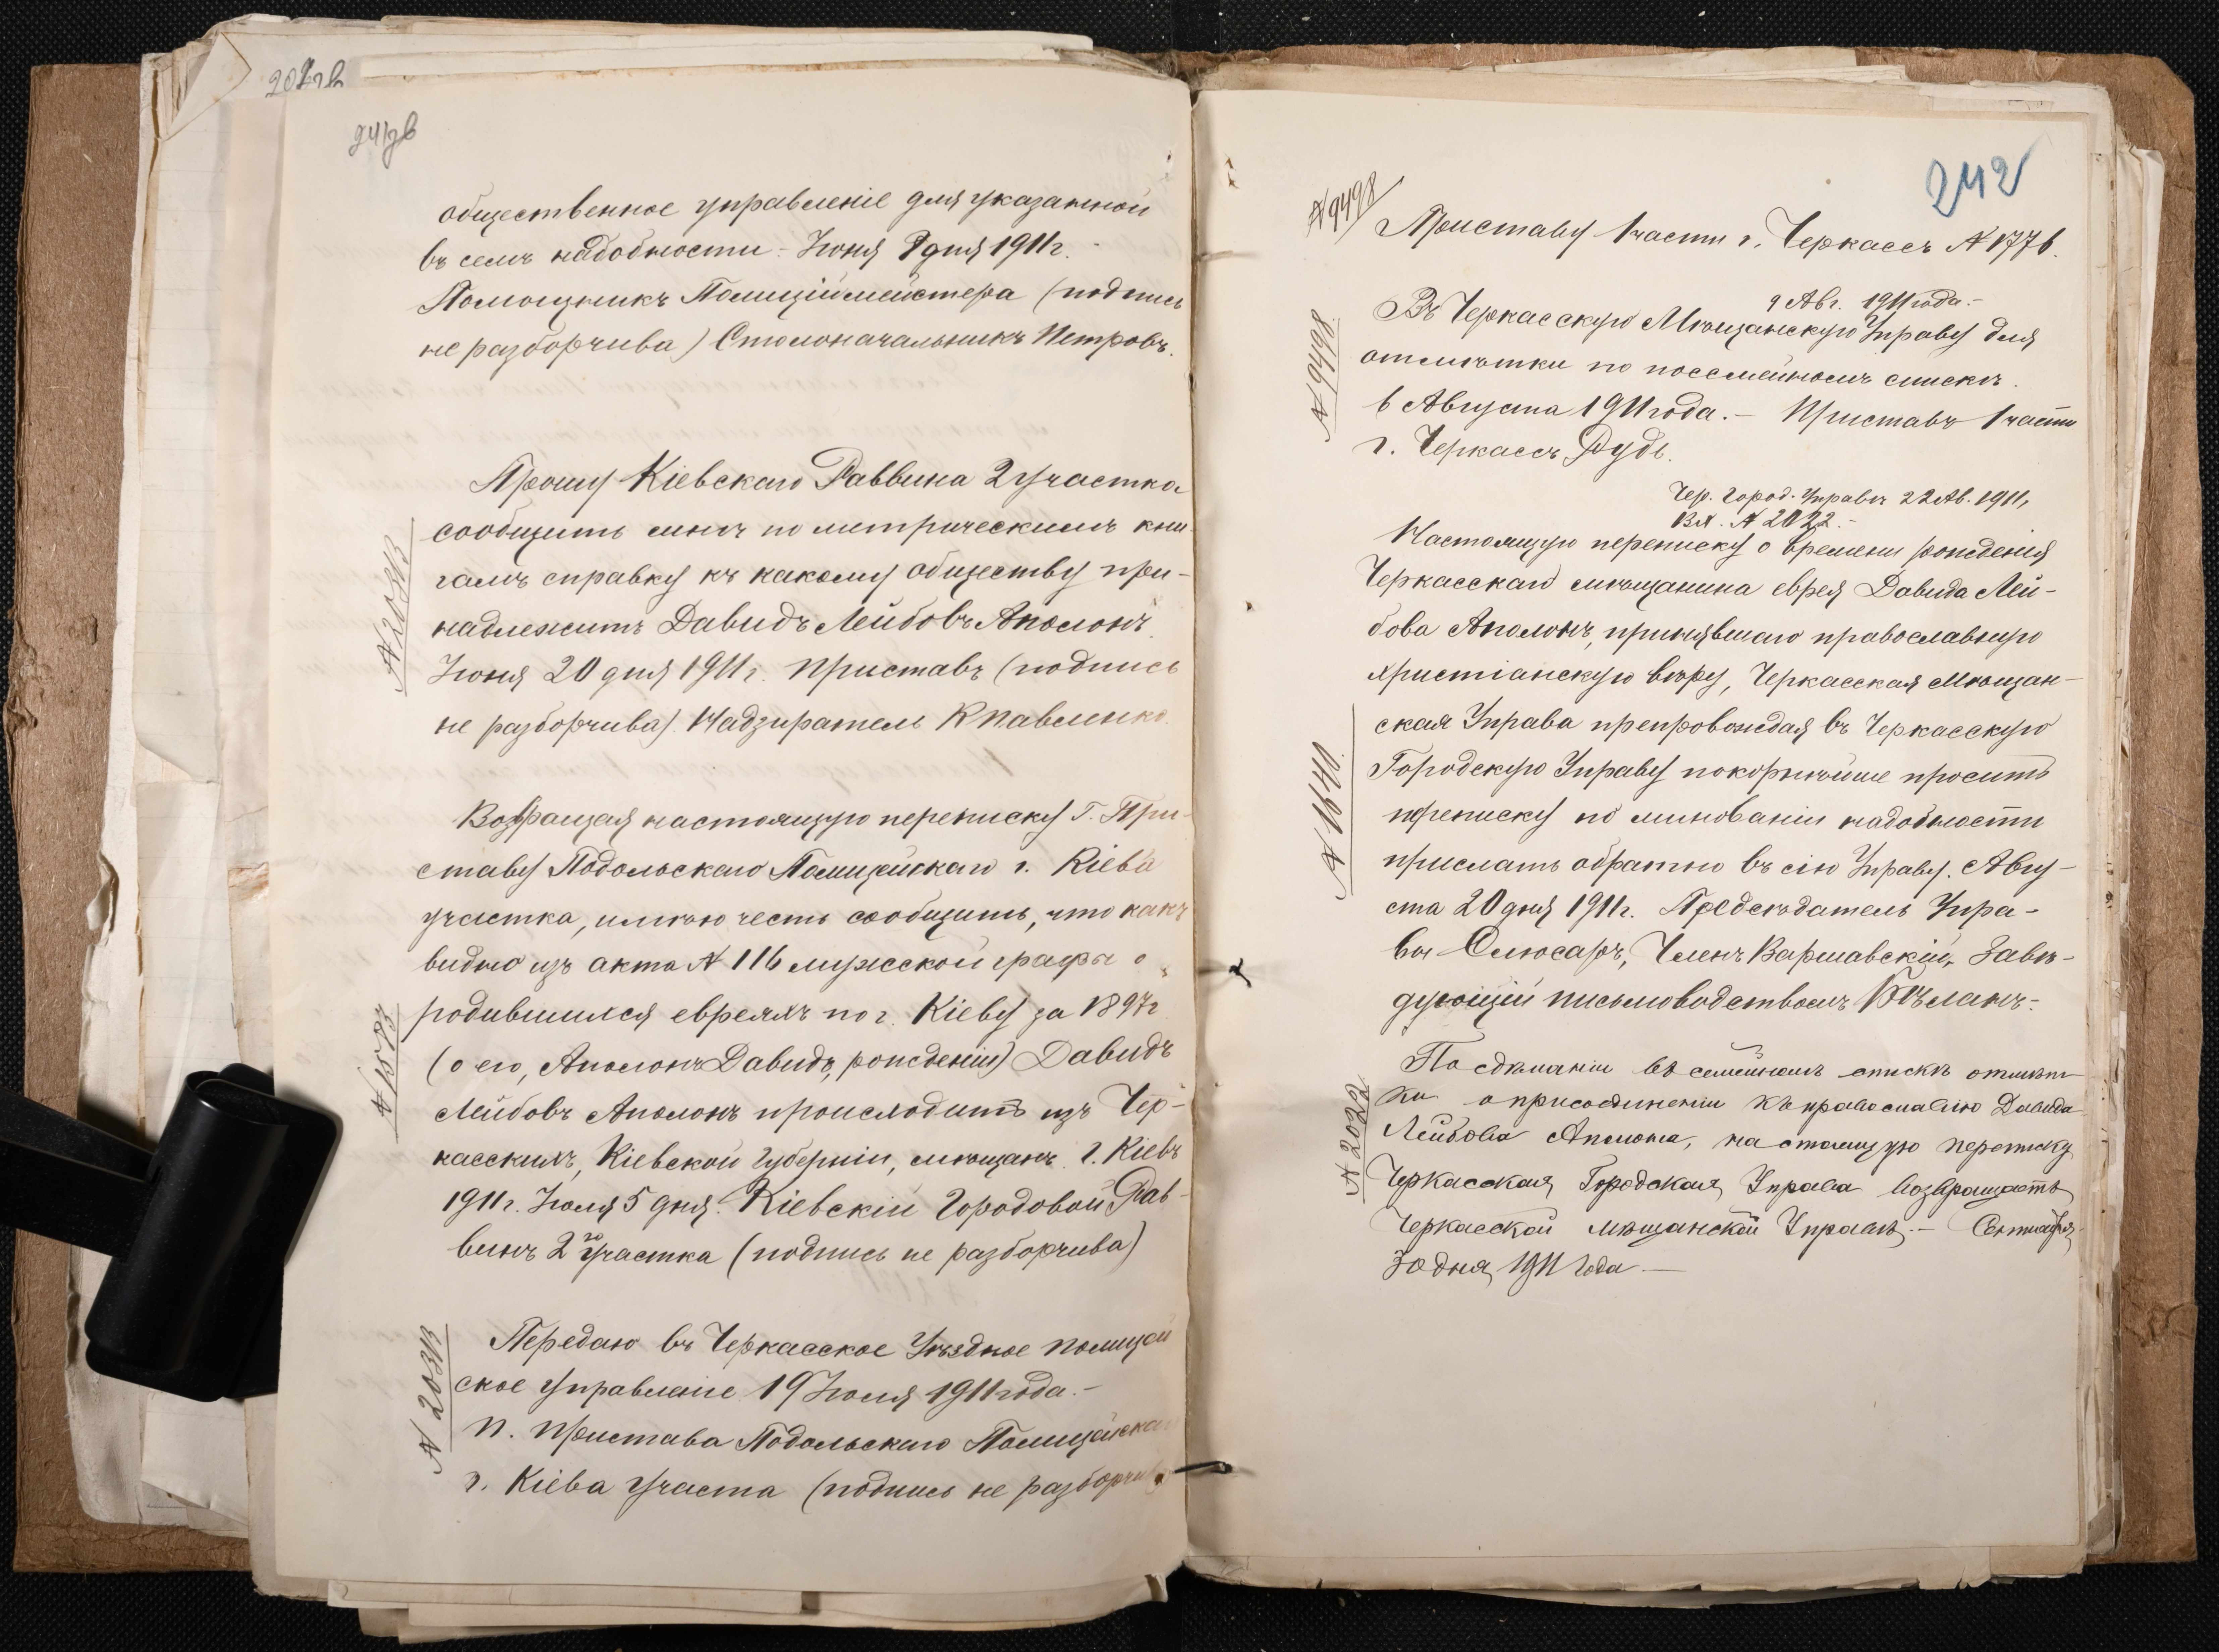 241зв
общественное управленіе для указанной
въ семъ надобности - Іюня 9 дня 1911 г. -
Помощникъ Полиціймейстера (подпись
не разборчива) Столоначальникъ Петровъ.
Прошу Кіевскаго Раввина 2 участка
сообщить мнѣ по метрическимъ кни-
гамъ справку къ какому обществу при-
надлежитъ Давидъ Лейбовъ Аполонъ.
Іюня 20 дня 1911 г. Приставъ (подпись
не разборчива). Надзиратель К Павленко.
№ 20313
Возвращая настоящую переписку Г. При-
ставу Подольскаго Полицейскаго г. Кіева
участка, имѣю честь сообщить, что какъ
видно изъ акта № 116 мужской графы о
родившихся евреяхъ по г. Кіеву за 1897 г
(о его, Аполонъ Давидъ, рожденіи) Давидъ
Лейбовъ Аполонъ происходитъ изъ Чер-
касскихъ, Кіевской губерніи, мѣщанъ. г. Кіевъ
1911 г. Іюля 5 дня. Кіевскій Городовой Рав-
винъ 2го участка (подпись не разборчива)
№ 1573
Передаю въ Черкасское Уѣздное полицей
ское управленіе 19 Іюля 1911 года. -
П. Пристава Подольскаго Полицейскаго
г. Кіева участа (подпись не разборчива
№ 20313
242
№ 9498
Приставу 1 части г. Черкассъ № 1776.
9 Авг. 1911 года. -
Въ Черкасскую Мѣщанскую Управу для
отмѣтки по посемейномъ спискѣ.
6 Августа 1911 года. - Приставъ 1 части
г. Черкассъ Дудь.
№ 9498.
Чер. Город. Управы 22 Ав. 1911,
Вх. № 2022. -
Настоящую переписку о времени рожденія
Черкасскаго мѣщанина еврея Давида Лей-
бова Аполонъ, принявшаго православную
христіанскую вѣру, Черкасская Мѣщан-
ская Управа препровождая въ Черкасскую
Городскую Управу покорнѣйше проситъ
переписку по минованіи надобности
прислать обратно въ сію Управу. Авгу-
ста 20 дня 1911 г. Предсѣдатель Упра-
вы Слюсаръ, Членъ Варшавскій, Завѣ-
дующій письмоводствомъ Бѣланъ. -
№ 1640.
По сдѣланіи въ семейномъ спискѣ отмѣт
ки о присоединеніи къ православію Давида
Лейбова Аполона, настоящую переписку
Черкасская Городская Управа возвращаетъ
Черкасской мѣщанской Управѣ. - Сентября
30 дня 1911 года. -
№ 2022.